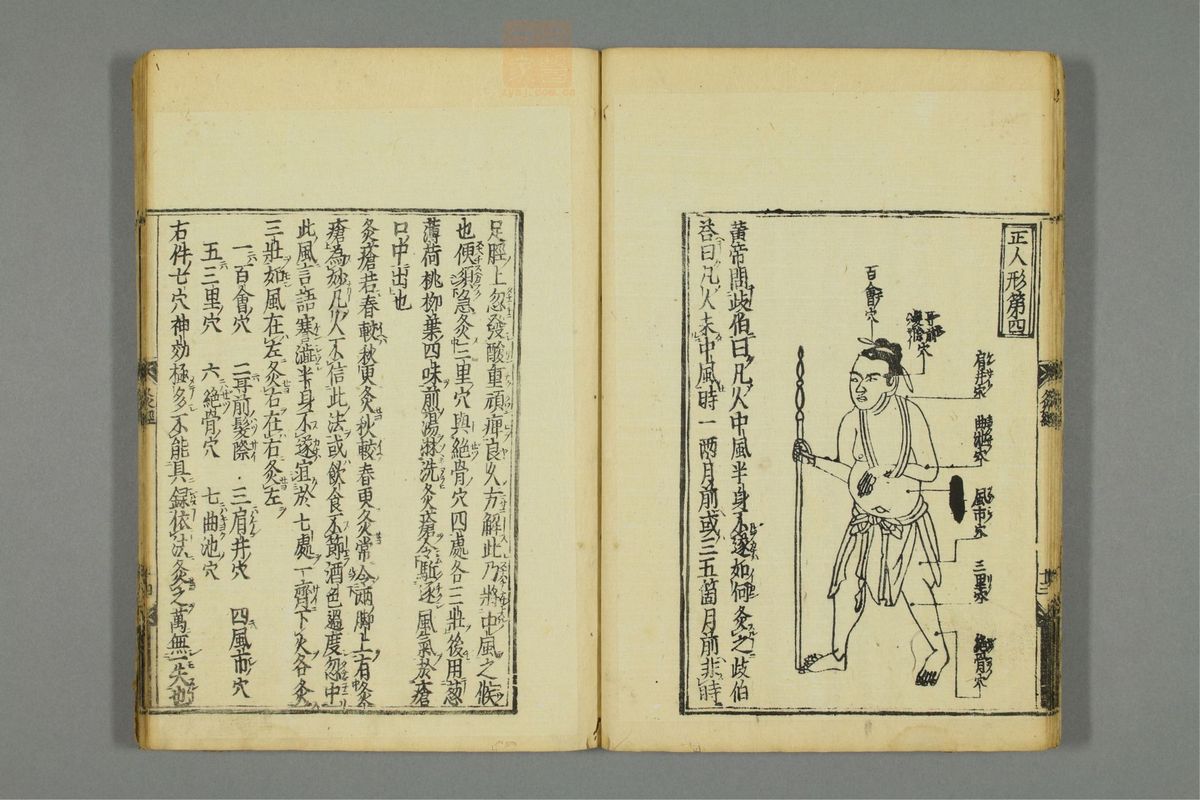 正人形第四
百會穴
耳前
髮際穴
肩井穴
曲池穴
風市穴
三里穴
絶骨穴
黄帝問歧伯曰凡人中風半身不遂如何灸之歧伯
答曰凡人未中風時一兩月前或三五箇月前非時
足脛上忽發酸重頑痺良久方解此乃將中風之候
也便須急灸三里穴與絶骨穴四處各三壯後用葱
薄荷桃柳葉四味煎湯淋洗灸瘡令駈逐風氣於瘡
口中出也
灸瘡若春較秋更灸秋較春更灸常令兩脚上有灸
瘡為妙凡人不信此法或飲食不節酒色過度忽中
此風言語蹇澁半身不遂宜於七處一齊下火各灸
三壯如風在左灸右在右灸左
一百會穴 二耳前髮際 三肩井穴 四風市穴
五三里穴 六絶骨穴 七曲池穴
右件七穴神効極多不能具録依法灸之萬無一失也